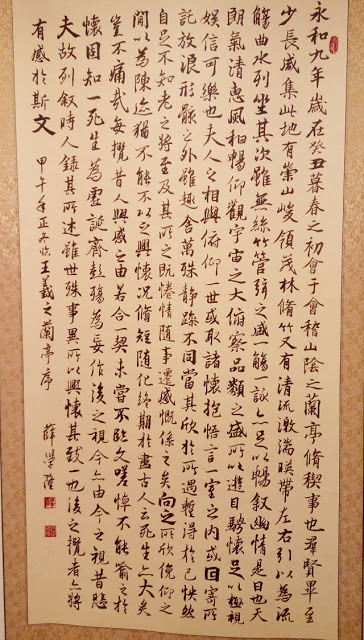 永和九年歲在癸丑暮春之初會于會稽山陰之蘭亭脩稧事也羣賢畢至
少長咸集此地有崇山峻領茂林脩竹又有清流激湍暎帶左右引以為流
觴曲水列坐其次雖無絲竹管弦之盛一觴一詠亦足以暢叙幽情是日也天
朗氣清惠風和暢仰觀宇宙之大俯察品類之盛所以遊目騁懷足以極視
娛信可樂也夫人之相與俯仰一世或取諸懷抱悟言一室之內或因寄所
託放浪形骸之外雖趣舍萬殊靜躁不同當其欣於所遇蹔得於己快然
自足不知老之將至及其所之既惓情隨事遷感慨係之矣向之所欣俛仰之
間以為陳迹猶不能不以之興懷況脩短隨化終期於盡古人云死生亦大矣
豈不痛哉每攬昔人興感之由若合一契未嘗不臨文嗟悼不能喻之於
懷固知一死生為虛誕齊彭殤為妄作後之視今亦由今之視昔悲
夫故列叙時人錄其所述雖世殊事異所以興懷其致一也後之攬者亦將
有感於斯文 甲午年正冬臨王羲之蘭亭序 薛學隆